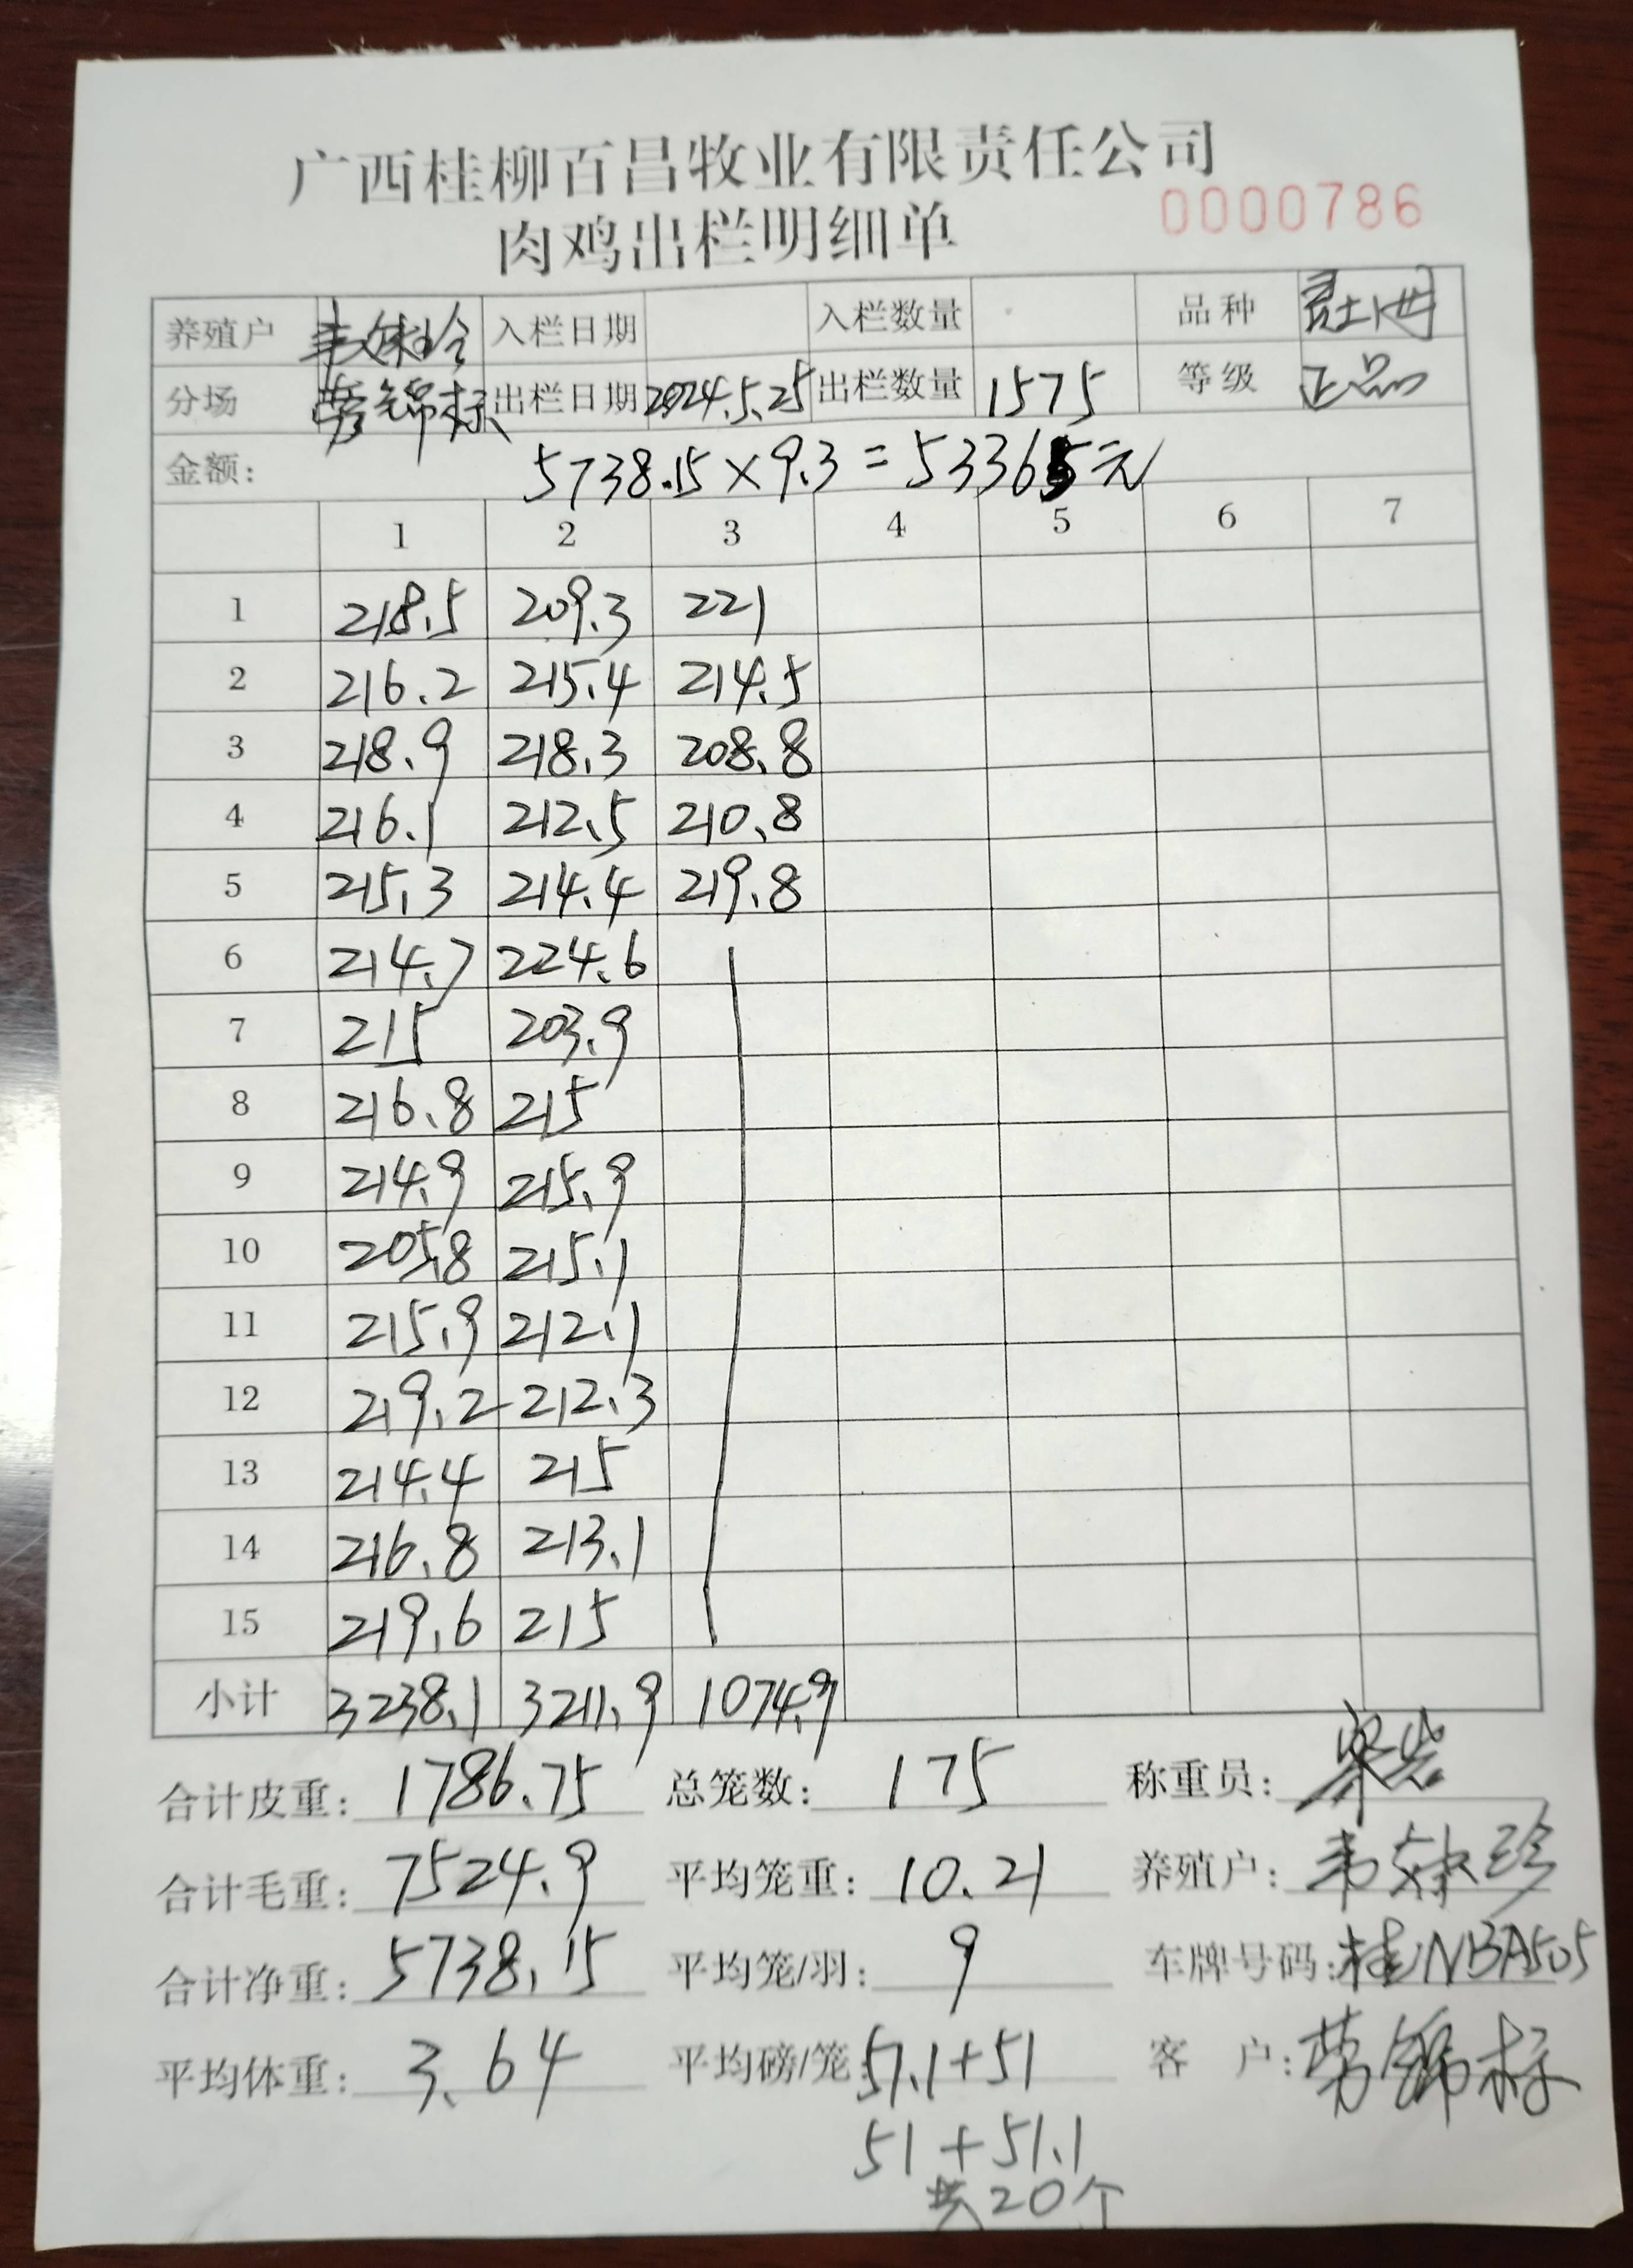 广西桂柳百昌牧业有限责任公司
肉鸡出栏明细单
0000786
养殖户 入栏日期 入栏数量 品种
分场 劳锦标 出栏日期 2024.5.25 出栏数量 1575 等级 正品
金额: 5738.15×9.3=53365元
1 2 3 4 5 6 7
1 218.5 209.3 221
2 216.2 215.4 214.5
3 218.9 218.3 208.8
4 216.1 212.5 210.8
5 215.3 214.4 219.8
6 214.7 224.6
7 215 203.9
8 216.8 215
9 214.9 215.9
10 205.8 215.1
11 215.9 212.1
12 219.2 212.3
13 214.4 215
14 216.8 213.1
15 219.6 215
小计 3238.1 3211.9 1074.9
合计皮重: 1786.75 总笼数: 175 称重员:
合计毛重: 7524.9 平均笼重: 10.21 养殖户:
合计净重: 5738.15 平均笼/羽: 9 车牌号码: 桂NBA505
平均体重: 3.64 平均磅/笼: 51.1+51 客 户: 劳锦标
51+51.1
共20个